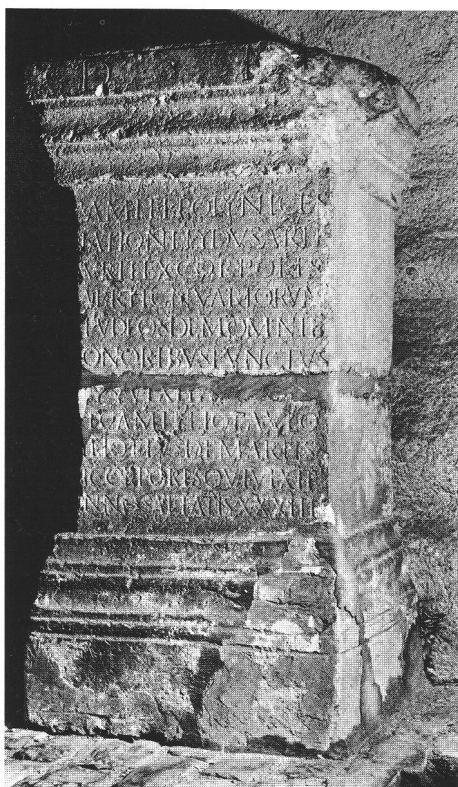 D
AMILLI POLYNICES
IATIONE LYDVS ARTI
VRIFEX CORPORIS
BR TIGNVARIORVM
PVD EOSDEM OMNIB
ONORIBVS FVNCTVS
VIXIT
CAMILLIO PAVLO
ILIO EIVSDEM ARTIS
CORPORIS QVI VIXIT
NNOS AETATIS XXXIII